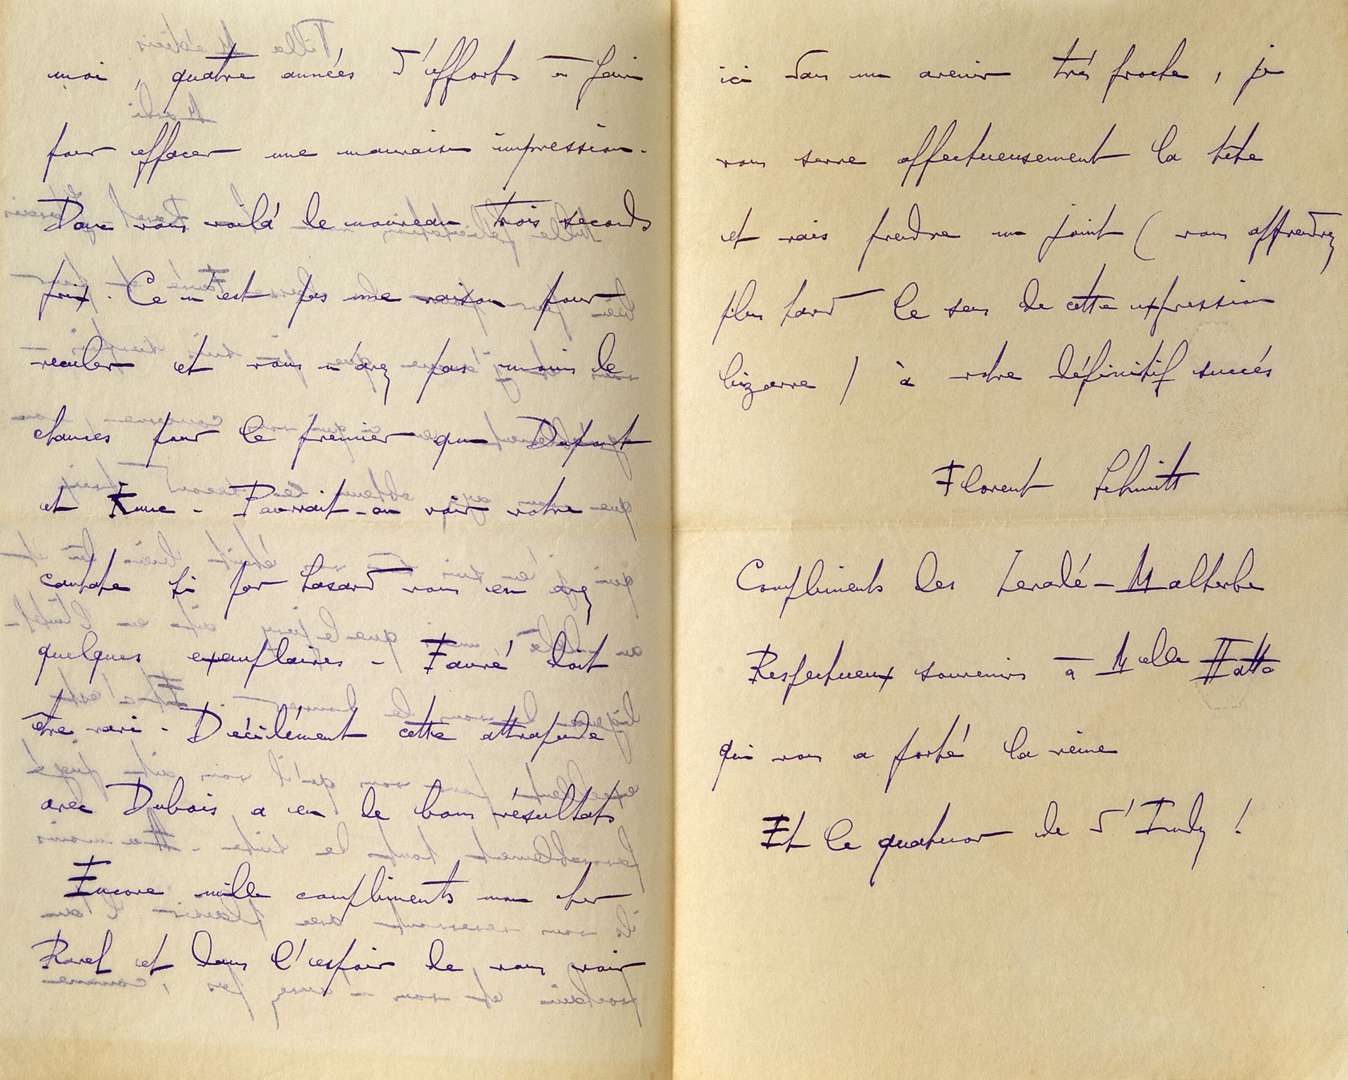 moi, quatre années d'efforts à faire
pour effacer une mauvaise impression.
Donc vous voilà de nouveau trois seconds
prix. Ce n'est pas une raison pour
reculer et vous n'avez pas moins de
chances pour le premier que Dupont
et Kunc - Pourrait-on voir votre
cantate si par hasard vous en avez
quelques exemplaires - Fauré doit
être ravi - Décidément cette attrapade
avec Dubois a eu de bons résultats
Encore mille compliments mon cher
Ravel et dans l'espoir de vous voir
ici dans un avenir très proche, je
vous serre affectueusement la tête
et vais prendre un joint (vous apprendrez
plus tard le sens de cette expression
bizarre) à votre définitif succès
Florent Schmitt
Compliments des Levadé-Malherbe
Respectueux souvenirs à Melle Hatto
qui vous a porté la veine
Et le quatuor de d'Indy!